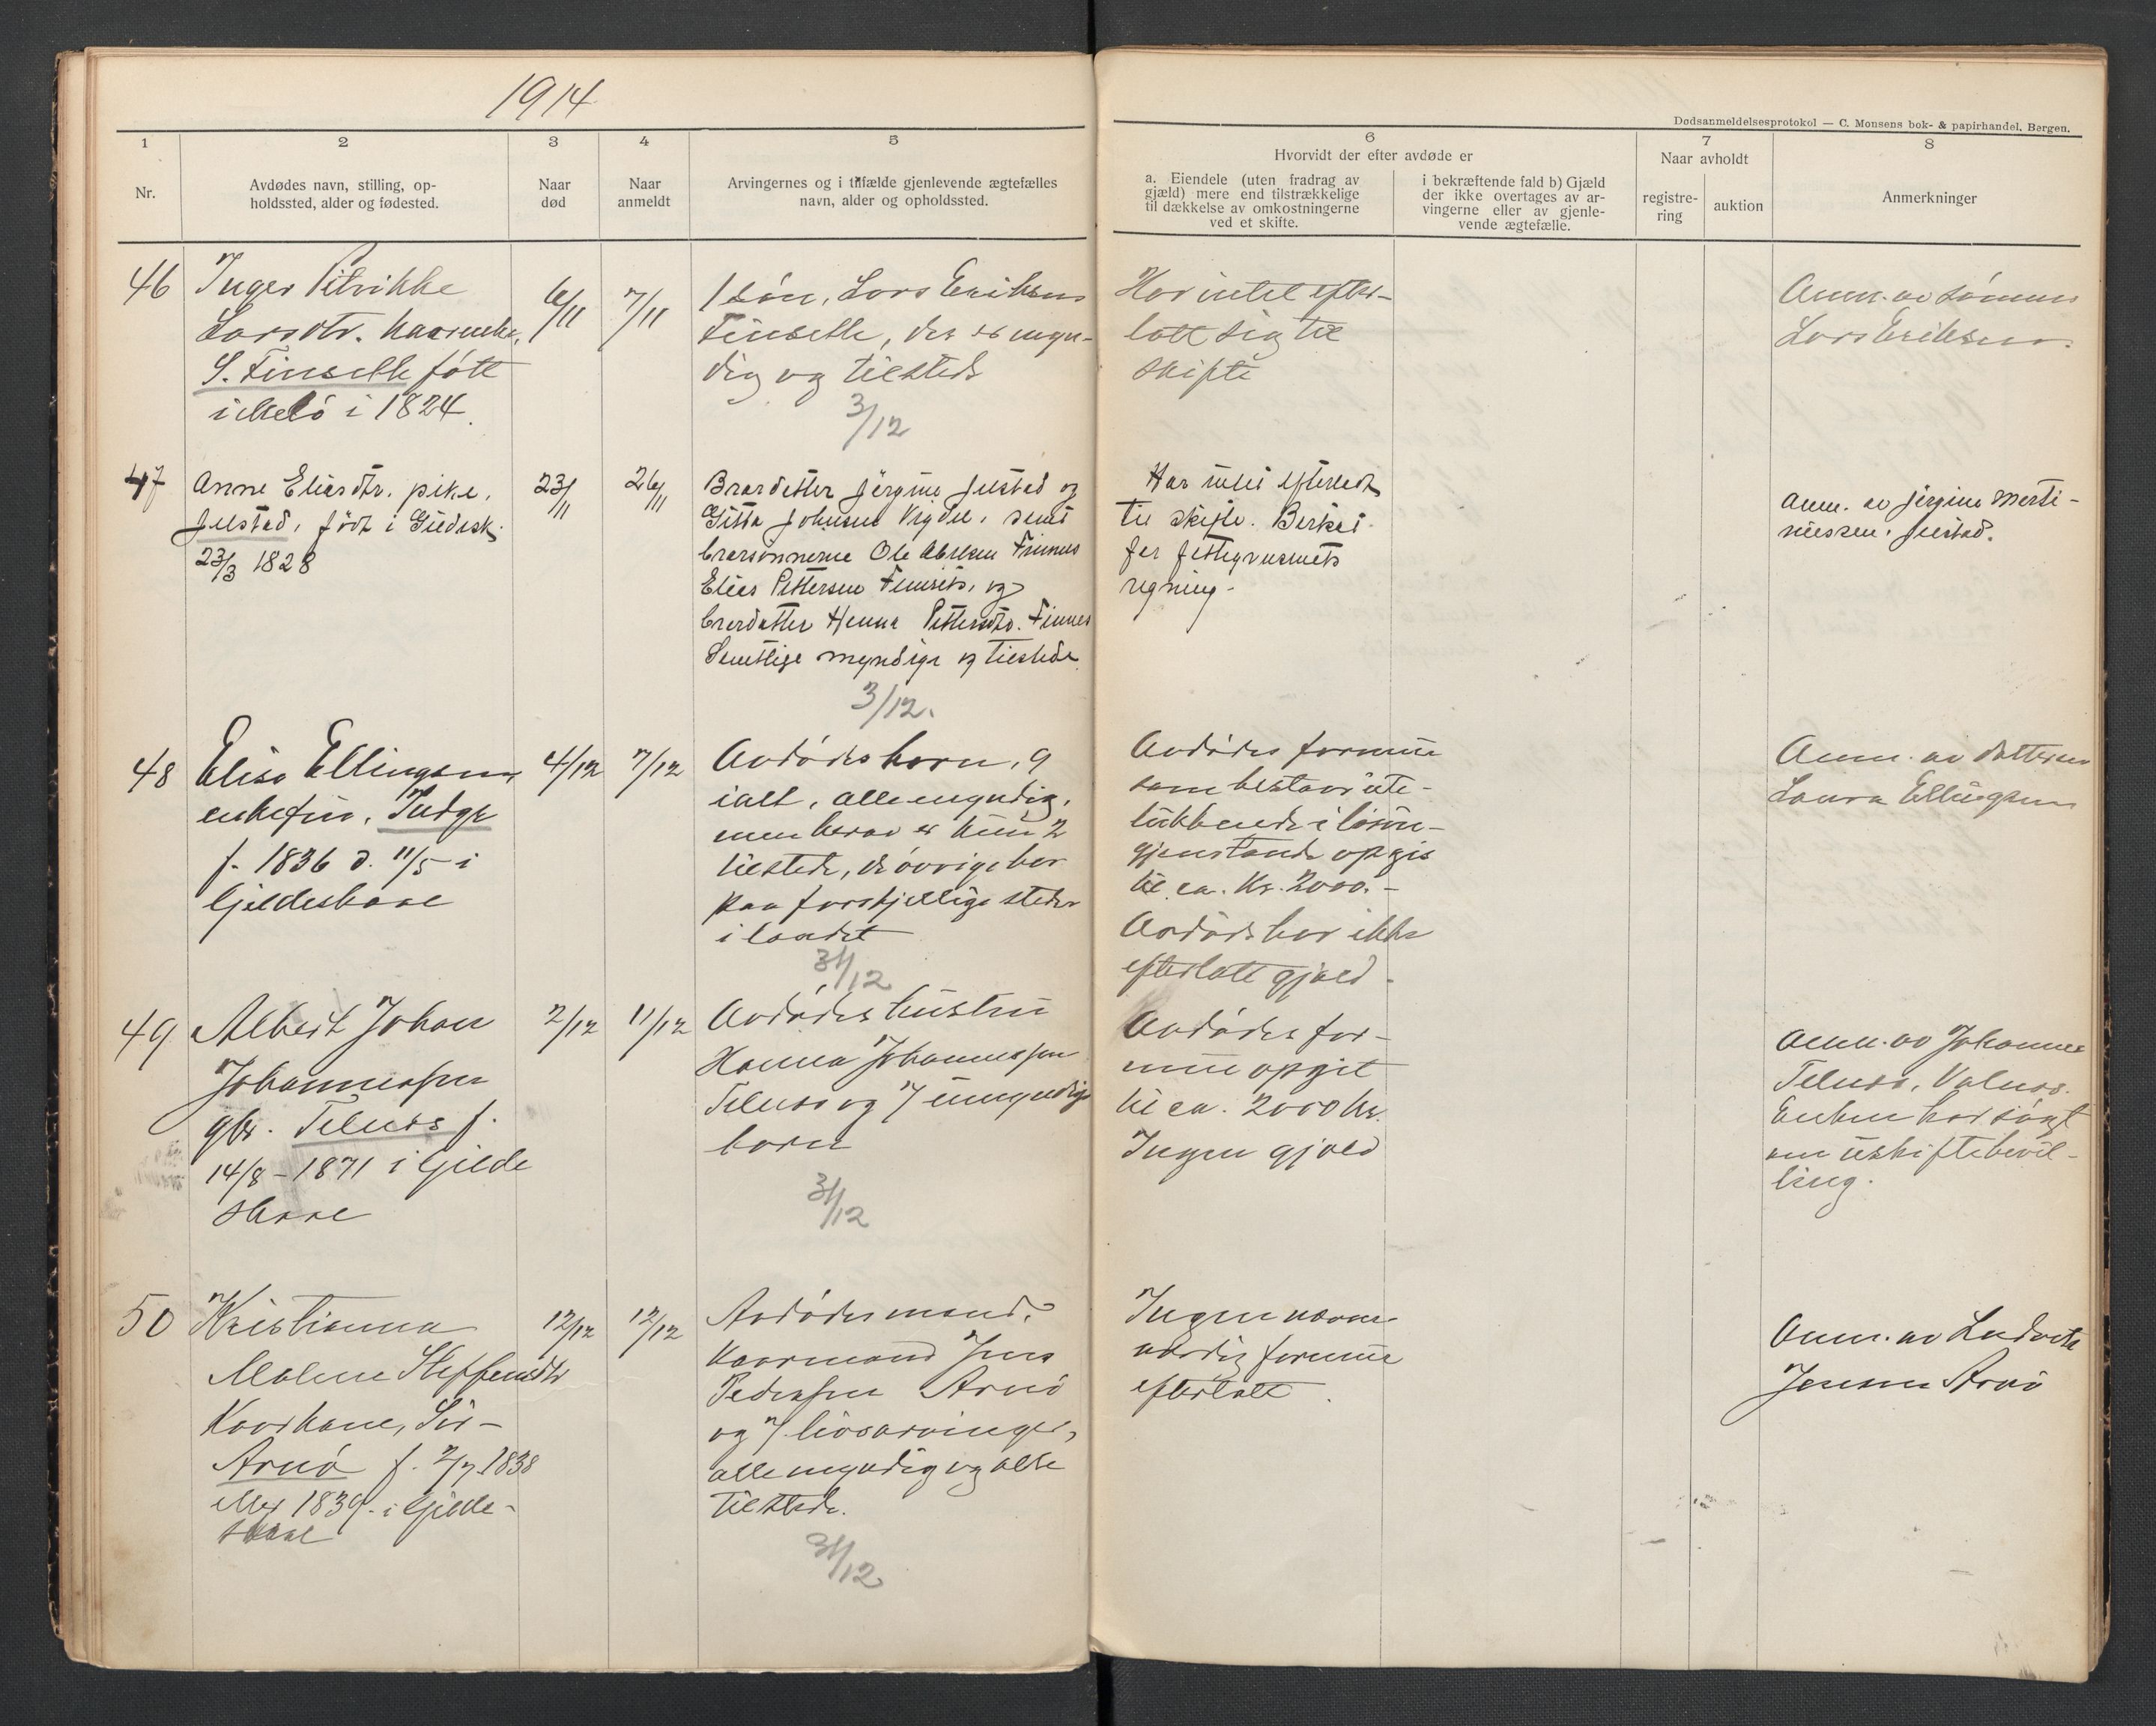 1914
Dødsanmeldelsesprotokol — C. Monsens bok- & papirhandel, Bergen.
1
2
3
4
5
6
7
8
Nr.
Avdødes navn, stilling, op-
holdssted, alder og fødested.
Naar
død
Naar
anmeldt
Arvingernes og i tilfælde gjenlevende ægtefælles
navn, alder og opholdssted.
Hvorvidt der efter avdøde er
a. Eiendele (uten fradrag av
gjæld) mere end tilstrækkelige
til dækkelse av omkostningerne
ved et skifte.
i bekræftende fald b) Gjæld
der ikke overtages av ar-
vingerne eller av gjenle-
vende ægtefælle.
Naar avholdt
registre-
ring
auktion
Anmerkninger
46
Inger Petrikke
Larsdtr.
S. Finseth født
i Melö i 1824.
6/11
7/11
1 sön, Lars Eriksen
Finseth, der er myn-
dig og tilsteds
3/12
Har intet efter-
latt sig til
skifte
Anm. av sönnen
Lars Eriksen.
47
Anne Eliasdtr. pike.
födt i Gildesk.
23/3 1828
23/11
26/11
Brordatter Jörgine og
Gitta Johnsen samt
brorsönnerne Ole Finnes
Elias Pettersen og
brordatter Hanna Pettersdtr. Finnes
Samtlige myndige og tilstede
3/12.
Har intet efterladt
til skifte.
for
regning.
Anm. av Jörgine Marti-
niussen.
48
Elisa Ellingsen
enkefru, Indyr
f. 1836 d. 11/5 i
Gjildeskaal
4/12
7/12
Avdödes born, 9
ialt, alle myndig,
men herav er kun 2
tilstede, de övrige bor
paa forskjellige steder
i landet
31/12
Avdödes formue
som bestaar ute-
lukkende i lösöre-
gjenstande opgis
til ca. Kr. 2000.-
Avdöde har ikke
efterlatt gjæld.
Anm. av datteren
Laura Ellingsen
49
Albert Johan
Johannessen
gbr. Telnes f.
14/8 - 1871 i Gilde
skaal
2/12
11/12
Avdödes hustru
Hanna Johannessen
Telnes og 7 umyndige
born
31/12
Avdödes for-
mue opgit
til ca. 2000 Kr.
Ingen gjæld
Anm. av Johannes
Telnes, Valnes.
Enken har sögt
om uskiftebevil-
ling.
50
Kristianna
Malene Steffensdtr
Kaarkone, Sör-
Arnö f. 2/7 1838
eller 1839 i Gjilde-
skaal
12/12
12/12
Avdödes mand,
Kaarmand Jens
Pedersen Arnö
og 7 livsarvinger,
alle myndig og alle
tilstede.
31/12
Ingen nævne-
værdig formue
efterlatt.
Anm. av Ludvik
Jensen Arnö